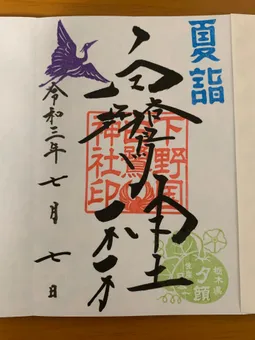 夏詣
白鷺神社
下野国
白鷺
神社印
令和三年七月七日
栃木県
夕顔